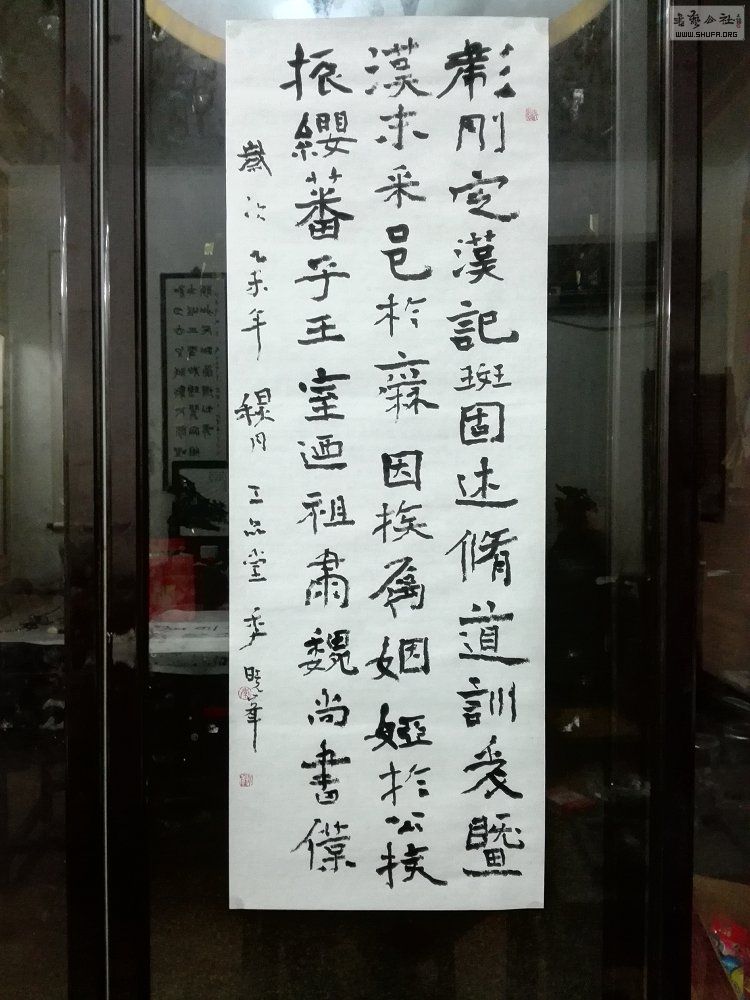 彪刪定漢記班固述脩道訓爰暨
漢末采邑於爨因族焉姻婭於公族
振纓蕃乎王室迺祖肅魏尚書僕
歲次乙未年 月 三品堂 曉峰
書藝公社
WWW.SHUFA.ORG